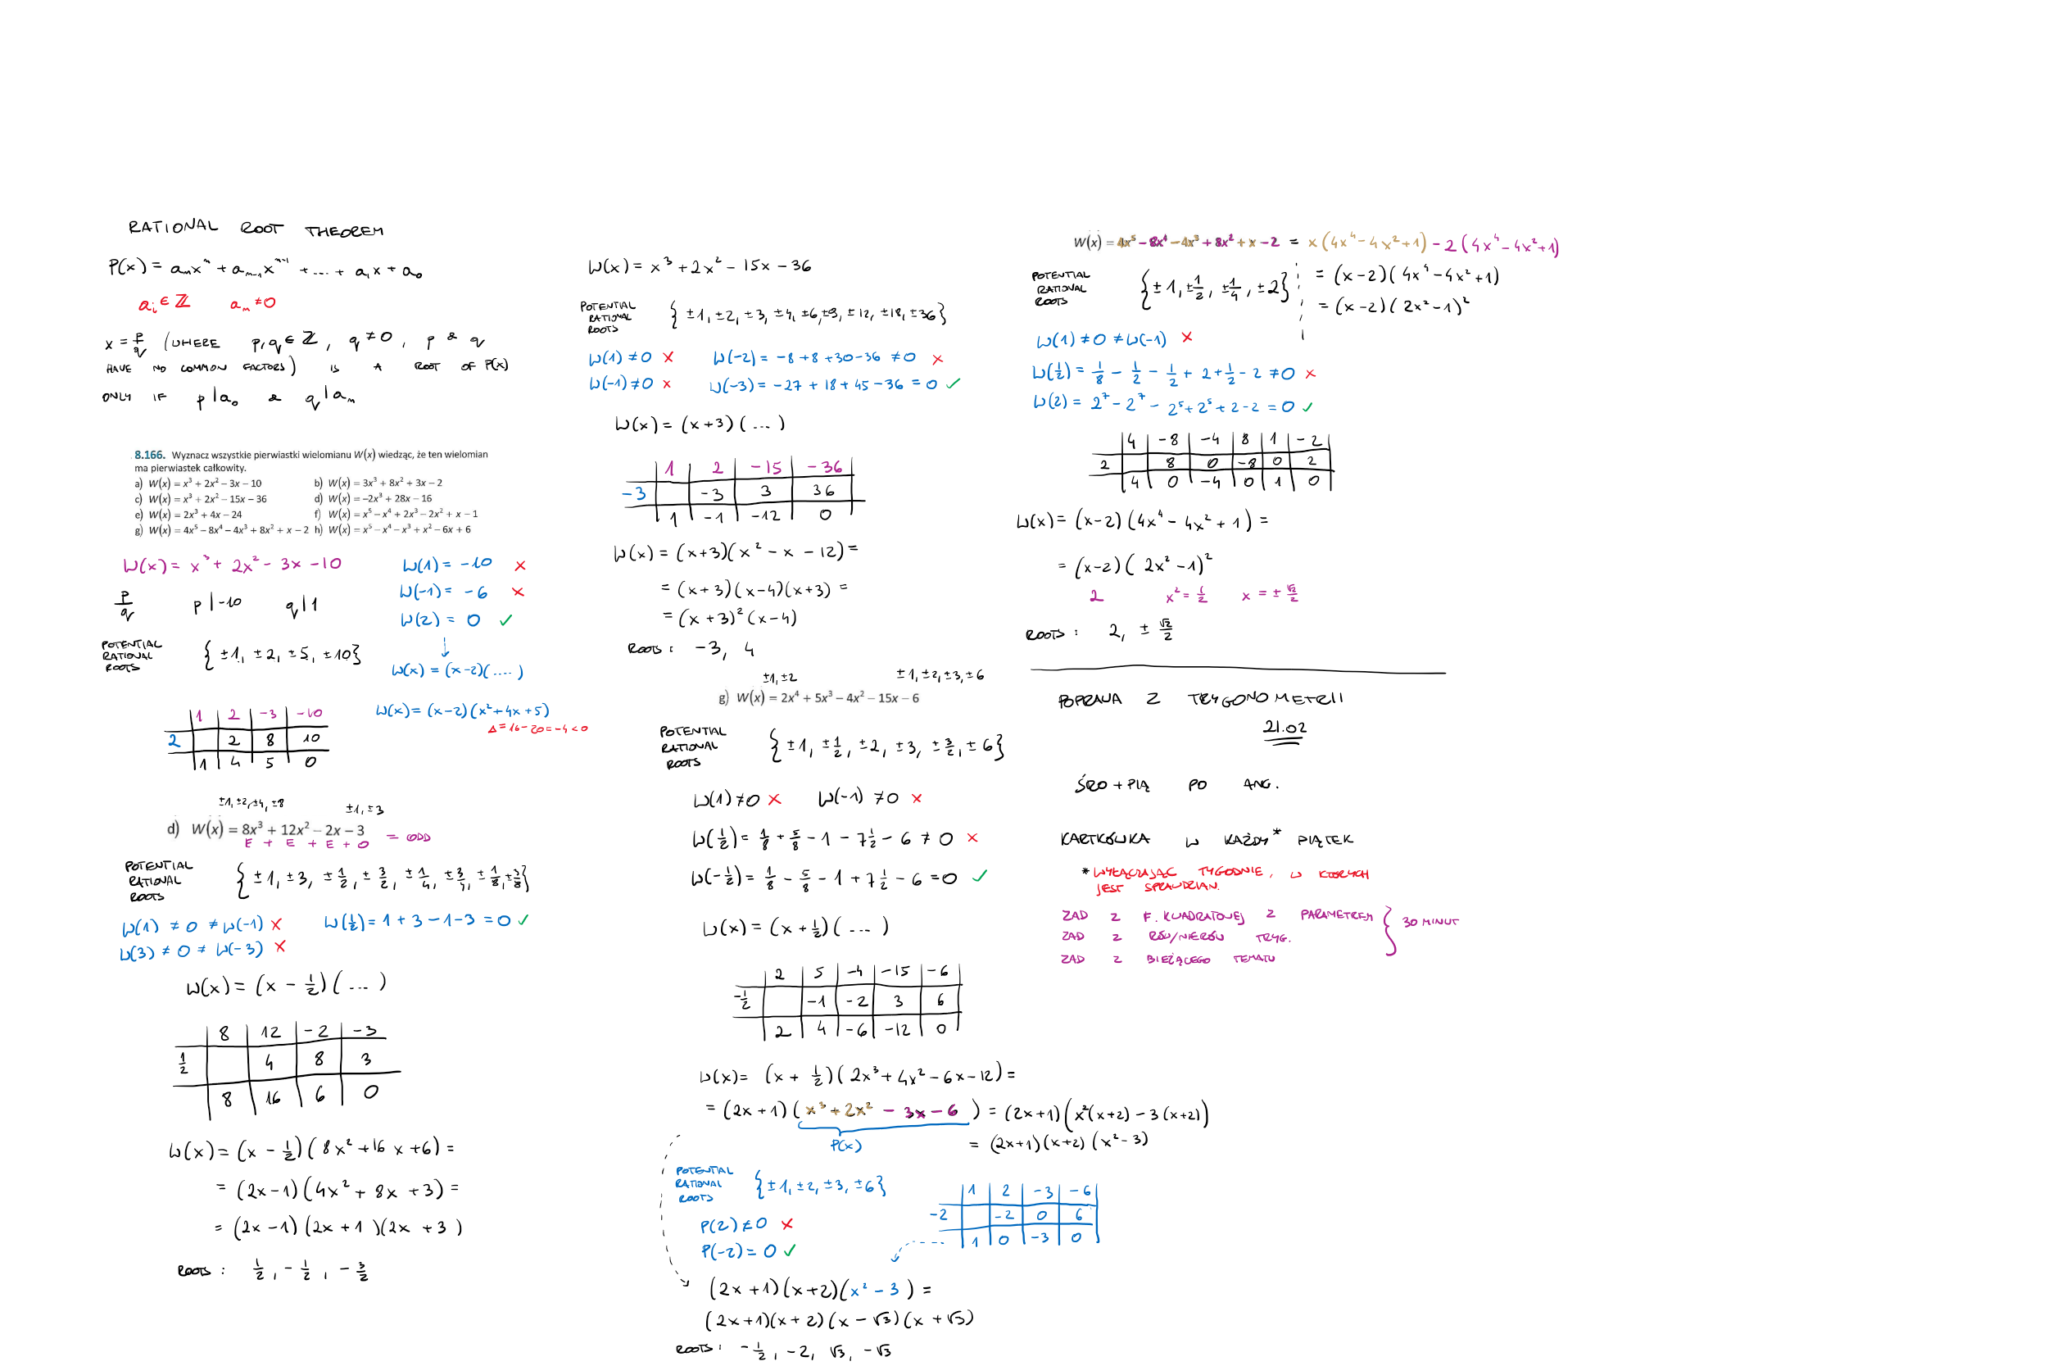 RATIONAL ROOT THEOREM
P(x) = aₙxⁿ + aₙ₋₁xⁿ⁻¹ + ... + a₁x + a₀
aᵢ ∈ ℤ aₙ ≠ 0
x = p/q (WHERE p, q ∈ ℤ, q ≠ 0, p & q
HAVE NO COMMON FACTORS) IS A ROOT OF P(x)
ONLY IF p | a₀ & q | aₙ
8.166. Wyznacz wszystkie pierwiastki wielomianu W(x) wiedząc, że ten wielomian
ma pierwiastek całkowity.
a) W(x) = x³ + 2x² – 3x – 10 b) W(x) = 3x³ + 8x² + 3x – 2
c) W(x) = x³ + 2x² – 15x – 36 d) W(x) = –2x³ + 28x – 16
e) W(x) = 2x³ + 4x – 24 f) W(x) = x⁵ – x⁴ + 2x³ – 2x² + x – 1
g) W(x) = 4x⁵ – 8x⁴ – 4x³ + 8x² + x – 2 h) W(x) = x⁵ – x⁴ – x³ + x² – 6x + 6
W(x) = x³ + 2x² - 3x - 10
p/q p | -10 q | 1
POTENTIAL RATIONAL ROOTS {±1, ±2, ±5, ±10}
W(1) = -10 ×
W(-1) = -6 ×
W(2) = 0 ✓
W(x) = (x-2)(....)
1 2 -3 -10
2 2 8 10
1 4 5 0
W(x) = (x-2)(x²+4x+5)
Δ = 16-20 = -4 < 0
±1, ±2, ±4, ±8 ±1, ±3
d) W(x) = 8x³ + 12x² – 2x – 3 = ODD
E + E + E + O
POTENTIAL RATIONAL ROOTS {±1, ±3, ±1/2, ±3/2, ±1/4, ±3/4, ±1/8, ±3/8}
W(1) ≠ 0 ≠ W(-1) × W(1/2) = 1 + 3 - 1 - 3 = 0 ✓
W(3) ≠ 0 ≠ W(-3) ×
W(x) = (x - 1/2)(...)
8 12 -2 -3
1/2 4 8 3
8 16 6 0
W(x) = (x - 1/2)(8x² + 16x + 6) =
= (2x-1)(4x² + 8x + 3) =
= (2x-1)(2x+1)(2x+3)
ROOTS: 1/2, -1/2, -3/2
W(x) = x³ + 2x² - 15x - 36
POTENTIAL RATIONAL ROOTS {±1, ±2, ±3, ±4, ±6, ±9, ±12, ±18, ±36}
W(1) ≠ 0 × W(-2) = -8 + 8 + 30 - 36 ≠ 0 ×
W(-1) ≠ 0 × W(-3) = -27 + 18 + 45 - 36 = 0 ✓
W(x) = (x+3)(...)
1 2 -15 -36
-3 -3 3 36
1 -1 -12 0
W(x) = (x+3)(x² - x - 12) =
= (x+3)(x-4)(x+3) =
= (x+3)²(x-4)
ROOTS: -3, 4
±1, ±2 ±1, ±2, ±3, ±6
g) W(x) = 2x⁴ + 5x³ – 4x² – 15x – 6
POTENTIAL RATIONAL ROOTS {±1, ±1/2, ±2, ±3, ±3/2, ±6}
W(1) ≠ 0 × W(-1) ≠ 0 ×
W(1/2) = 1/8 + 5/8 - 1 - 7 1/2 - 6 ≠ 0 ×
W(-1/2) = 1/8 - 5/8 - 1 + 7 1/2 - 6 = 0 ✓
W(x) = (x + 1/2)(...)
2 5 -4 -15 -6
-1/2 -1 -2 3 6
2 4 -6 -12 0
W(x) = (x + 1/2)(2x³ + 4x² - 6x - 12) =
= (2x+1)(x³ + 2x² - 3x - 6) = (2x+1)(x²(x+2) - 3(x+2))
P(x) = (2x+1)(x+2)(x²-3)
POTENTIAL RATIONAL ROOTS {±1, ±2, ±3, ±6}
P(2) ≠ 0 ×
P(-2) = 0 ✓
1 2 -3 -6
-2 -2 0 6
1 0 -3 0
(2x+1)(x+2)(x²-3) =
(2x+1)(x+2)(x-√3)(x+√3)
ROOTS: -1/2, -2, √3, -√3
W(x) = 4x⁵ – 8x⁴ – 4x³ + 8x² + x – 2 = x(4x⁴ - 4x² + 1) - 2(4x⁴ - 4x² + 1)
= (x-2)(4x⁴ - 4x² + 1)
= (x-2)(2x²-1)²
POTENTIAL RATIONAL ROOTS {±1, ±1/2, ±1/4, ±2}
W(1) ≠ 0 ≠ W(-1) ×
W(1/2) = 1/8 - 1/2 - 1/2 + 2 + 1/2 - 2 ≠ 0 ×
W(2) = 2⁷ - 2⁷ - 2⁵ + 2⁵ + 2 - 2 = 0 ✓
4 -8 -4 8 1 -2
2 8 0 -8 0 2
4 0 -4 0 1 0
W(x) = (x-2)(4x⁴ - 4x² + 1) =
= (x-2)(2x²-1)²
2 x² = 1/2 x = ± √2/2
ROOTS: 2, ± √2/2
POPRAWA Z TRYGONOMETRII
21.02
ŚRO + PIĄ PO ANG.
KARTKÓWKA W KAŻDY* PIĄTEK
* WYŁĄCZAJĄC TYGODNIE, W KTÓRYCH
JEST SPRAWDZIAN.
ZAD Z F. KWADRATOWEJ Z PARAMETREM
ZAD Z RÓW/NIERÓW TRYG. } 30 MINUT
ZAD Z BIEŻĄCEGO TEMATU